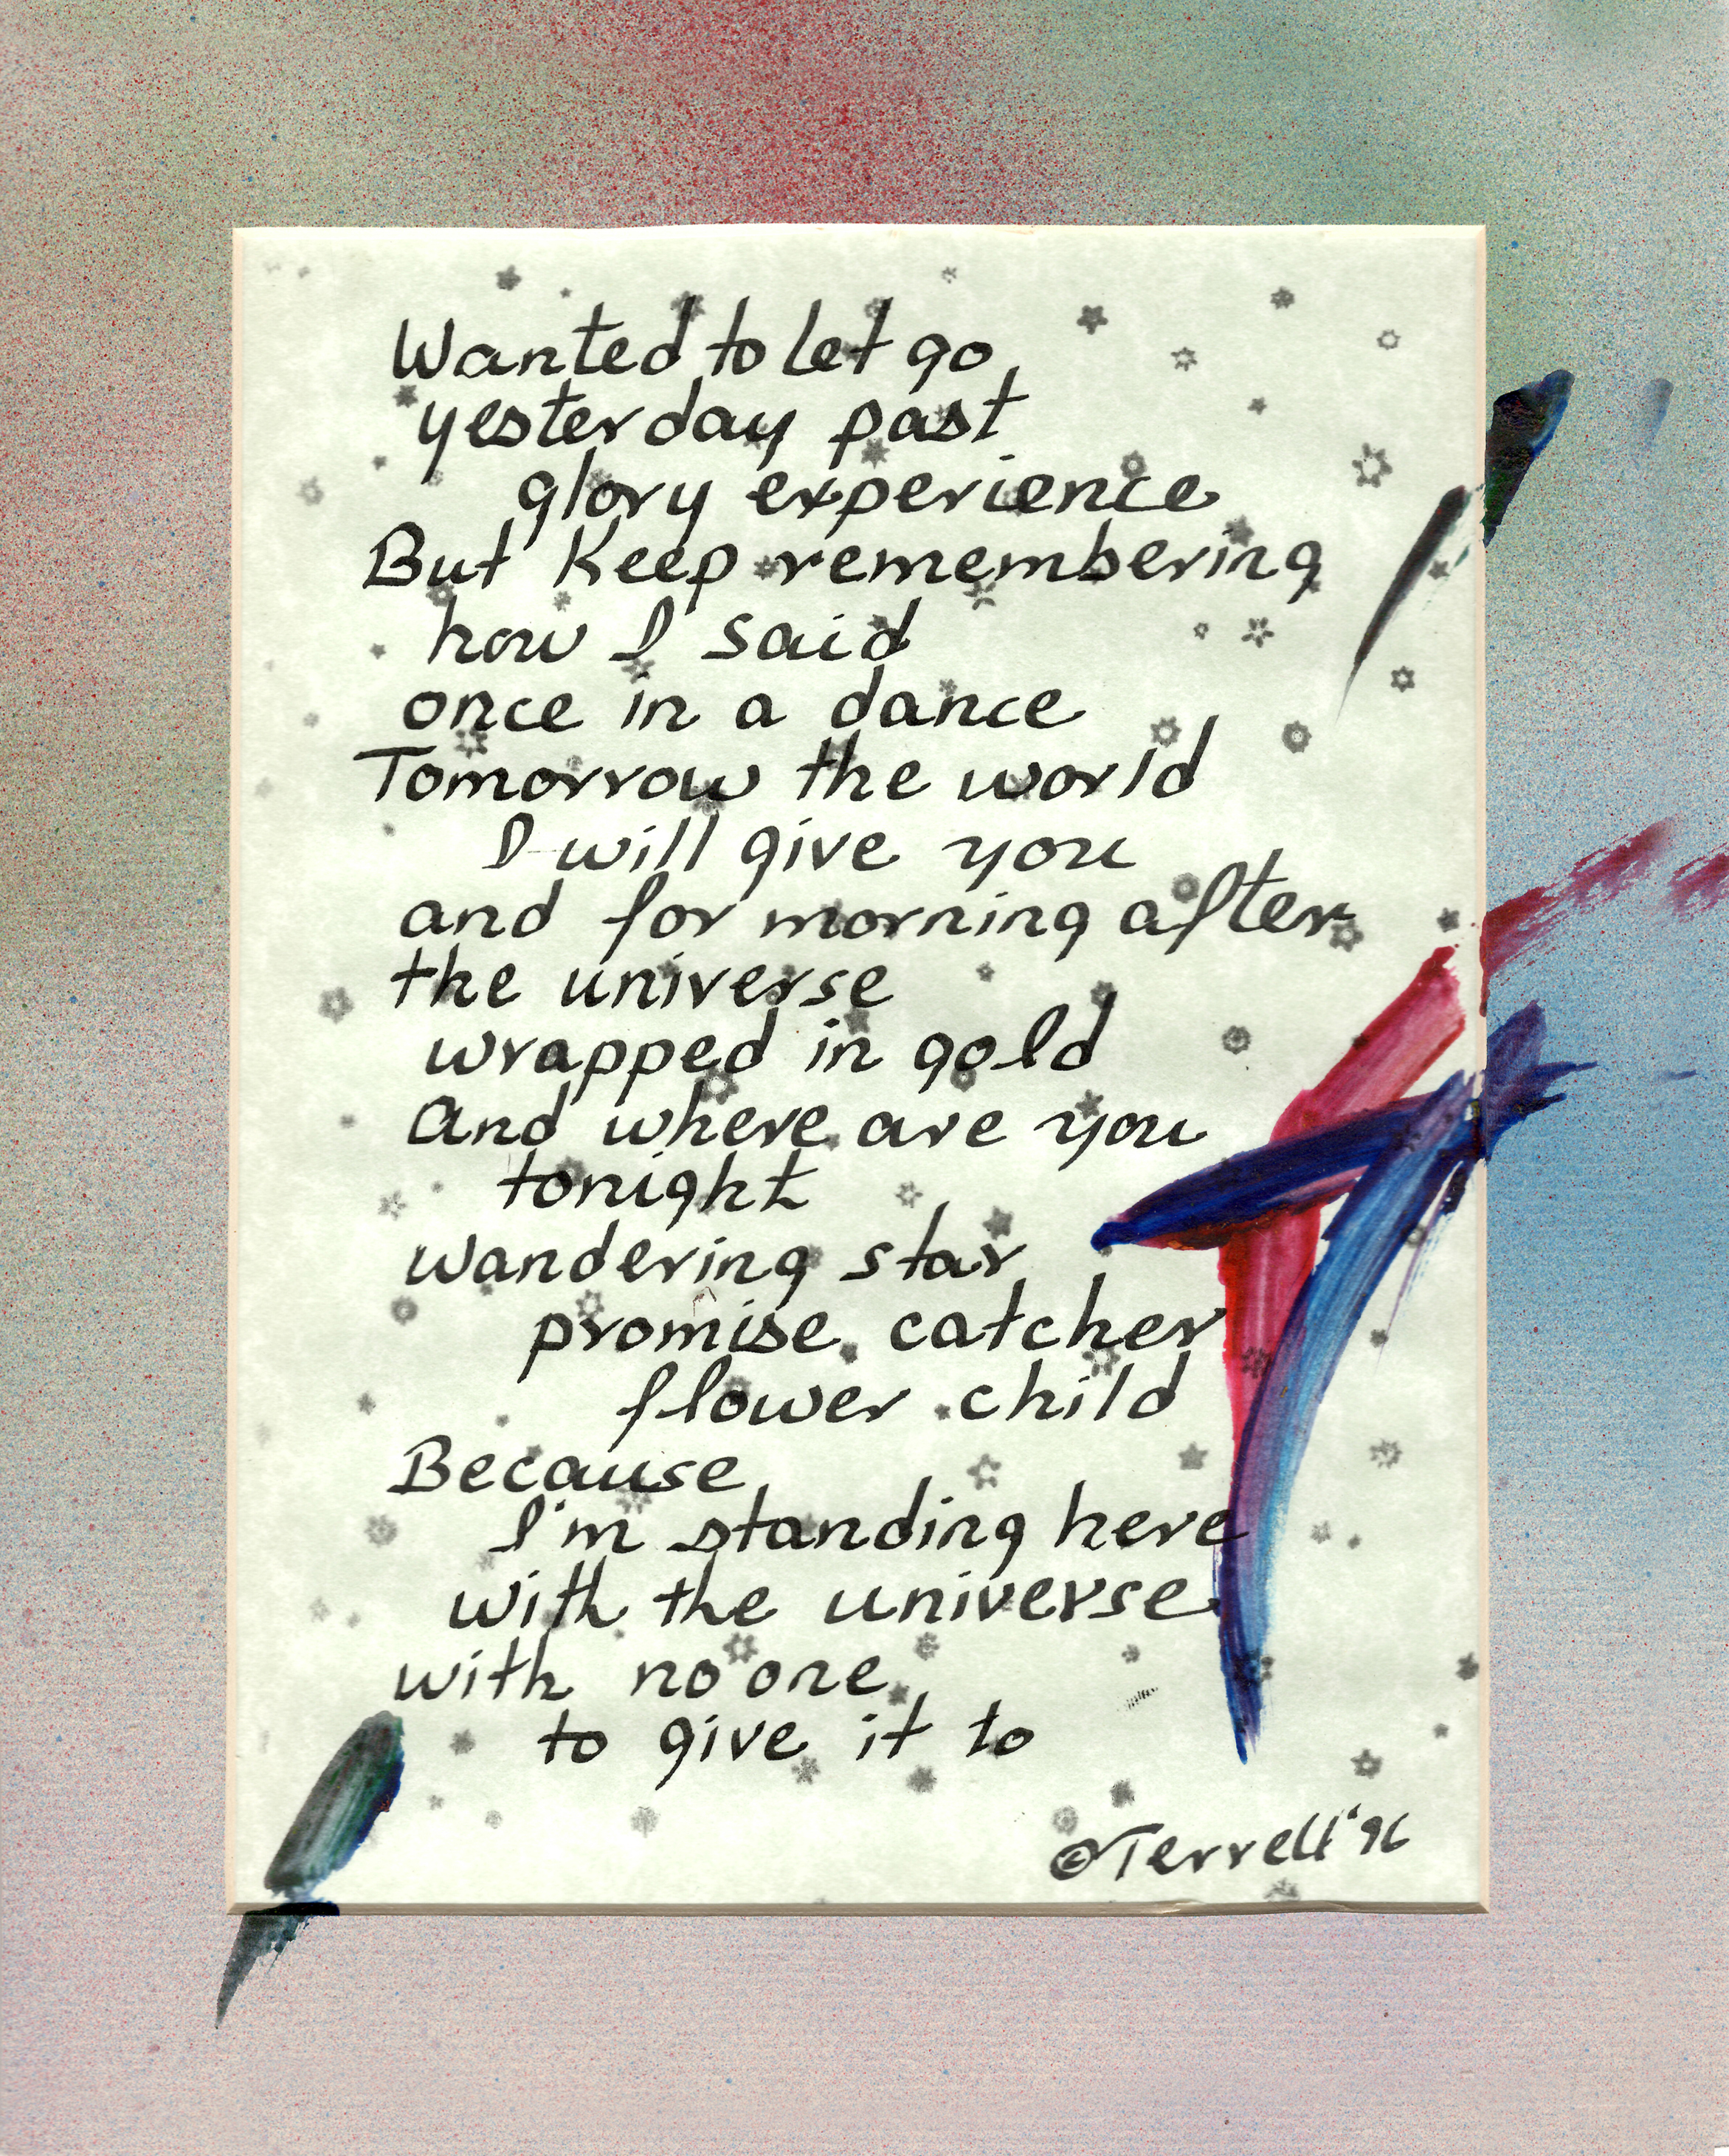 Wanted to let go
yesterday past
glory experience
But Keep remembering
how I said
once in a dance
Tomorrow the world
I will give you
and for morning after
the universe
wrapped in gold
And where are you
tonight
wandering star
promise catcher
flower child
Because
I'm standing here
with the universe
with no one
to give it to
©Terrell '96